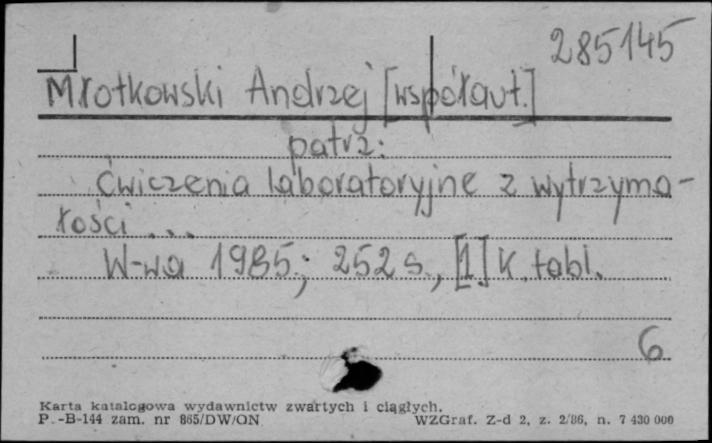 285145
Młotkowski Andrzej [współaut.]
patrz:
Ćwiczenia laboratoryjne z wytrzyma-
łości ...
W-wa 1985; 252 s., [1] k. tabl.
6
Karta katalogowa wydawnictw zwartych i ciągłych.
P.-B-144 zam. nr 865/DW/ON WZGraf. Z-d 2, z. 2/86, n. 7 430 000